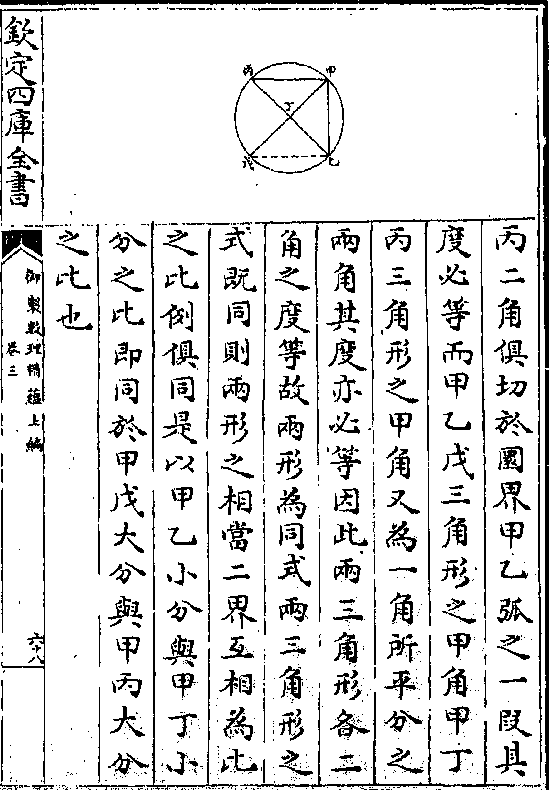 丙二角俱切於圜界甲乙弧之一段其
度必等而甲乙戊三角形之甲角甲丁
丙三角形之甲角又為一角所平分之
兩角其度亦必等因此兩三角形各二
角之度等故兩形為同式兩三角形之
式既同則兩形之相當二界互相為比
之比例俱同是以甲乙小分與甲丁小
分之比即同於甲戊大分與甲丙大分
之比也
丙
甲
丁
戊
乙
欽定四庫全書
御製數理精蘊上編
卷三
六十八